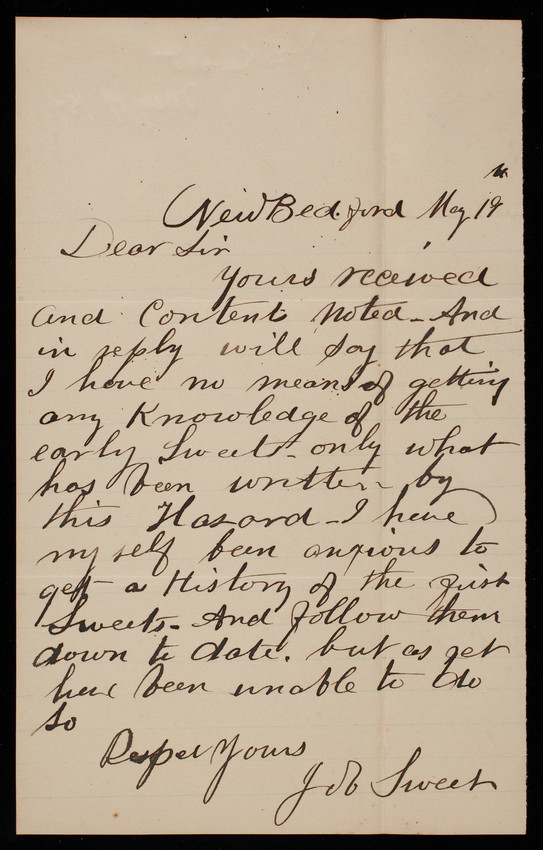 New Bedford May 19
Dear Sir
Yours received
and Content Noted - And
in reply will Say that
I have no means of getting
any Knowledge of the
early Sweets - only what
has been written by
this Hazard - I have
my self been anxious to
get a History of the first
Sweets - And follow them
down to date. but as yet
have been unable to do
So
Respet Yours
Job Sweet